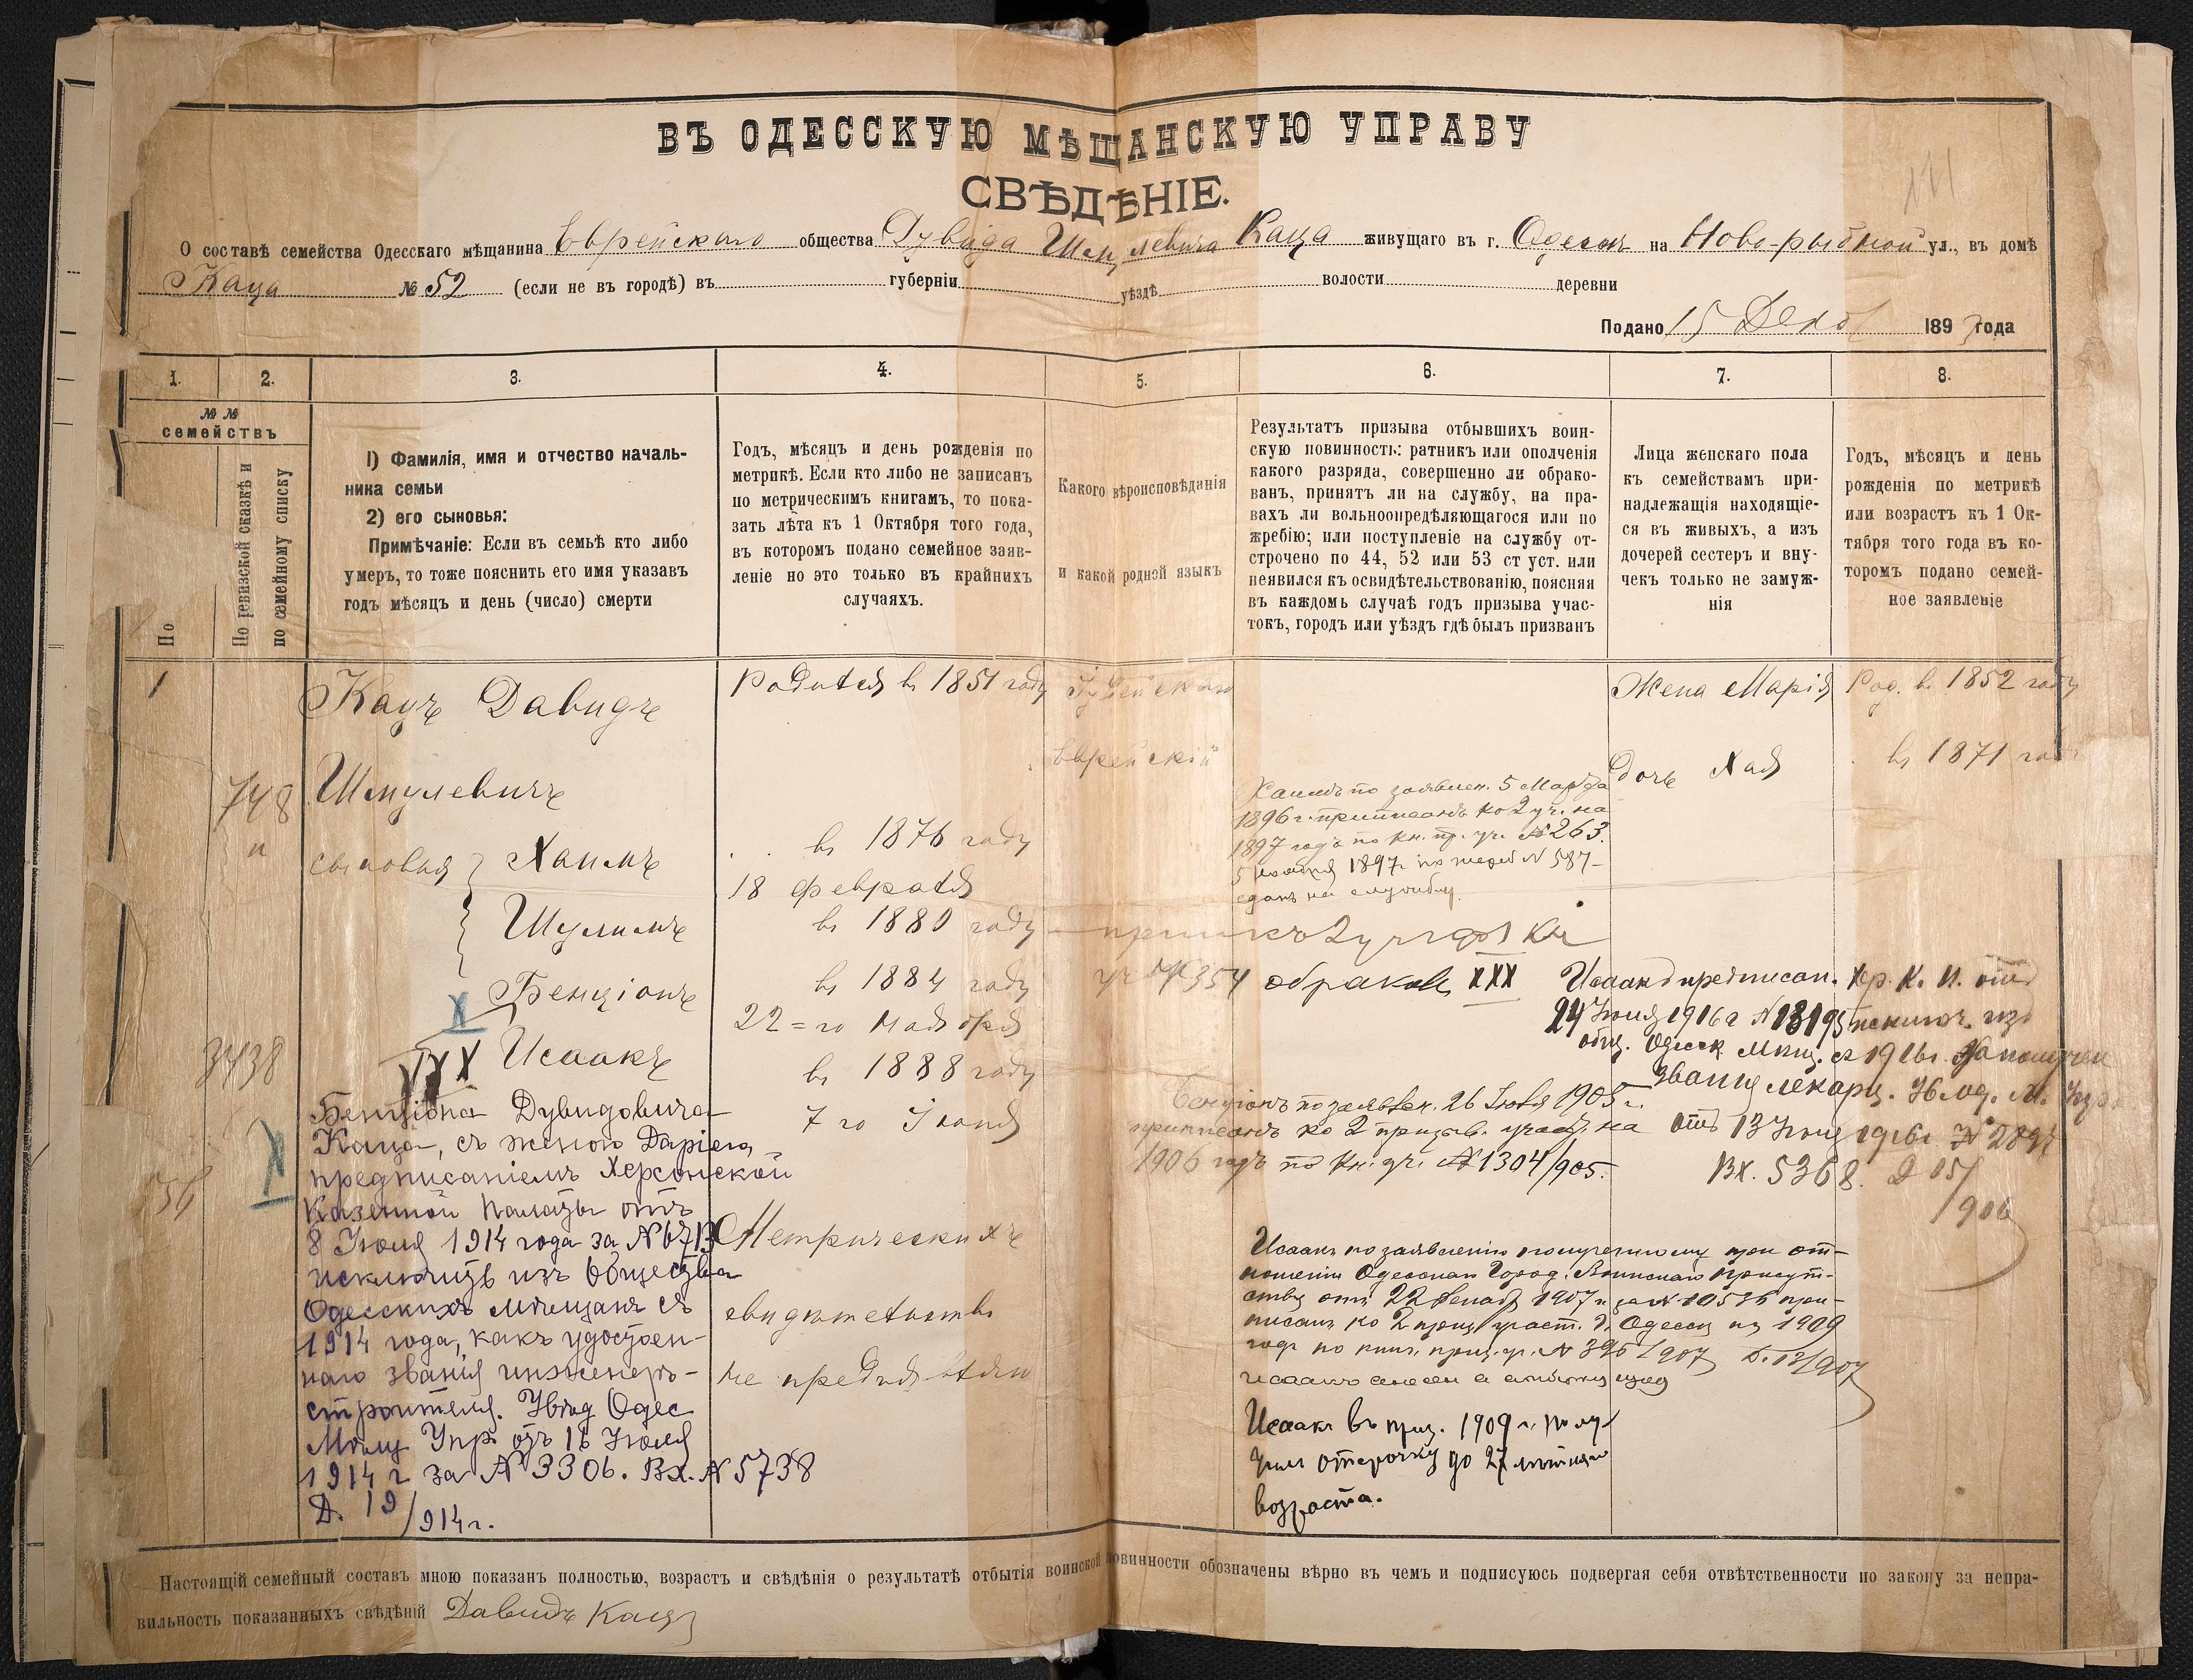 ВЪ ОДЕССКУЮ МѢЩАНСКУЮ УПРАВУ
СВѢДѢНІЕ.
О составѣ семейства Одесскаго мѣщанина Еврейскаго общества Дувида Шмулевича Каца живущаго въ г. Одессѣ на Ново-рыбной ул., въ домѣ
Каца № 52 (если не въ городѣ) въ губерніи уѣздѣ волости деревни
Подано 15 Декаб 1893 года
1. 2. 3. 4. 5. 6. 7. 8.
№ №
семействъ
По
По ревизской сказкѣ и
по семейному списку
1) Фамилія, имя и отчество началь-
ника семьи
2) его сыновья:
Примѣчаніе: Если въ семьѣ кто либо
умеръ, то тоже пояснить его имя указавъ
годъ мѣсяцъ и день (число) смерти
Годъ, мѣсяцъ и день рожденія по
метрикѣ. Если кто либо не записанъ
по метрическимъ книгамъ, то пока-
зать лѣта къ 1 Октября того года,
въ которомъ подано семейное заяв-
леніе но это только въ крайнихъ
случаяхъ.
Какого вѣроисповѣданія
и какой родной языкъ
Результатъ призыва отбывшихъ воин-
скую повинность: ратникъ или ополченія
какого разряда, совершенно ли обрако-
ванъ, принятъ ли на службу, на пра-
вахъ ли вольноопредѣляющагося или по
жребію; или поступленіе на службу от-
строчено по 44, 52 или 53 ст уст. или
неявился къ освидѣтельствованію, поясняя
въ каждомъ случаѣ годъ призыва учас-
токъ, городъ или уѣздъ гдѣ былъ призванъ
Лица женскаго пола
къ семействамъ при-
надлежащія находящіе-
ся въ живыхъ, а изъ
дочерей сестеръ и вну-
чекъ только не замуж-
нія
Годъ, мѣсяцъ и день
рожденія по метрикѣ
или возрастъ къ 1 Ок-
тября того года въ ко-
торомъ подано семей-
ное заявленіе
1
748
3438
Кацъ Давидъ
Шмулевичъ
сыновья Хаимъ
Шулимъ
Бенціонъ
X
XXX Исаакъ
Бенціона Дувидовича
Каца, съ женою Даріею,
предписаніемъ Херсонской
Казенной Палаты отъ
8 Іюля 1914 года за №
исключить изъ Общества
Одесскихъ мѣщанъ съ
1914 года, какъ удостоен-
наго званія инженеръ-
строителя. Увѣд Одес
Мѣщ Упр. отъ 16 Іюля
1914 г за № 3306. Вх. № 5738
Д. 19/914 г.
X
Родился въ 1851 году
въ 1876 году
18 февраля
въ 1880 году
въ 1884 году
22-го Ноября
въ 1888 году
7 го Іюня
Метрическихъ
свидѣтельствъ
не предъявляли
Іудейскаго
Еврейскій
Хаимъ по заявлен. 5 Марта
1896 г. приписанъ ко 2 уч. на
1897 годъ по кн. пр. уч. № 263.
5 ноября 1897 г. по жереб № 587
сданъ на службу.
уч № 354 обракован XXX
Бенціонъ по заявлен. 26 1905 г.
приписанъ ко 2 призыв. участ. на
1906 годъ по кн. уч. № 1304/905.
Исаакъ по заявленію полученному при от-
ношеніи Одесскаго Город. Воинскаго Присут-
ствія отъ 22 Декабр 1907 г. за № 10536 при-
писанъ ко 2 приз. участ. г. Одессы на 1909
годъ по книг. приз. уч. № 396/907 Д. 13/907
Исаакъ въ приз. 1909 г. полу-
чилъ отсрочку до 27 лѣтняго
возраста.
Жена Марія Род. въ 1852 году
дочь Хая въ 1871 году
Исаакъ предписан. Хер. К. П. отъ
24 Іюня 1916 г № 13195 исключ. изъ
общ. Одесск. мѣщ. съ 1916 г. за получен
званія лекаря. Ув. Од. М. Упр.
отъ 13 1916 г. № 2897
Вх. 5368. Д 05/906
Настоящій семейный составъ мною показанъ полностью, возрастъ и свѣдѣнія о результатѣ отбытія воинской повинности обозначены вѣрно въ чемъ и подписуюсь подвергая себя отвѣтственности по закону за непра-
вильность показанныхъ свѣдѣній Давидъ Кацъ